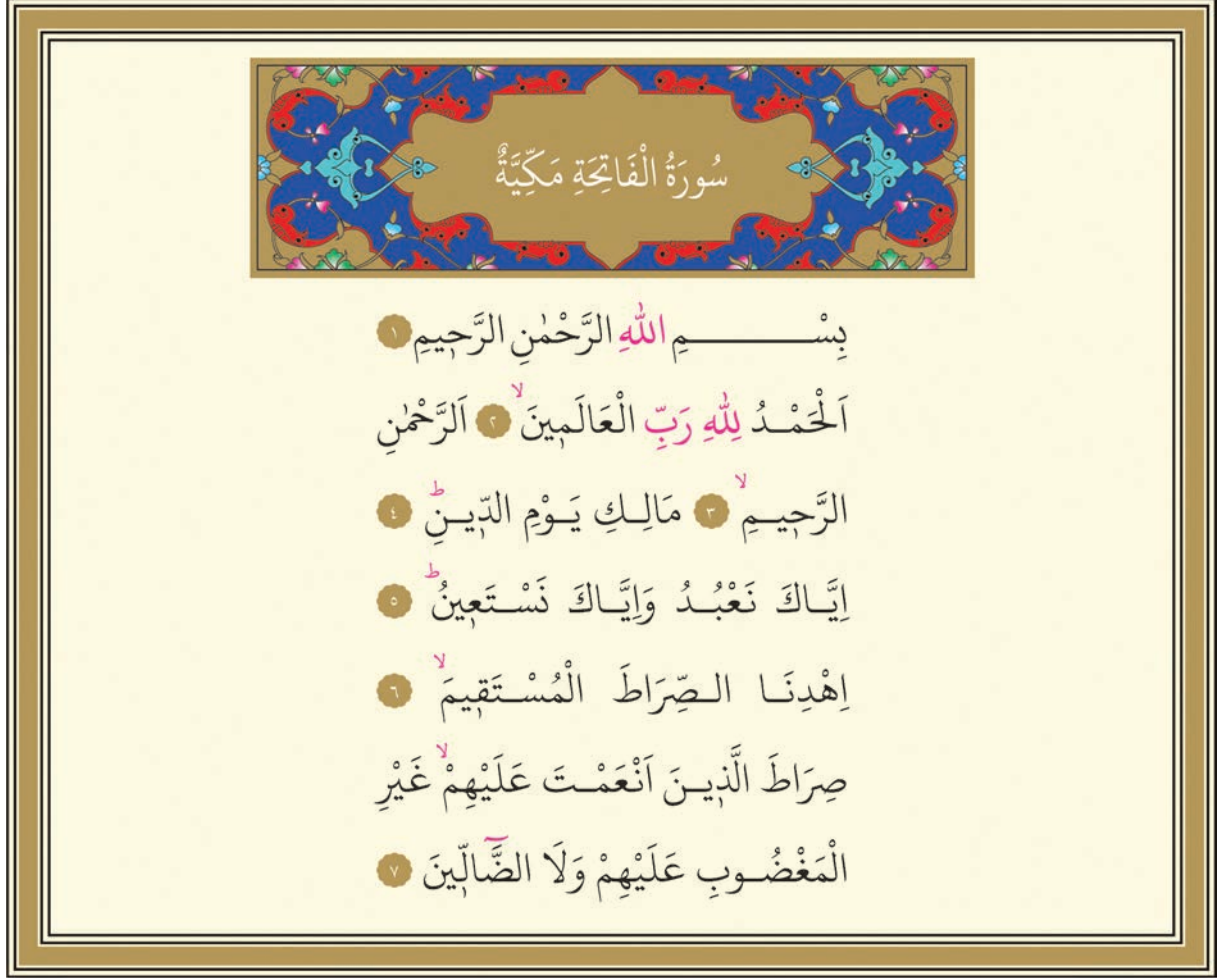 سُورَةُ الْفَاتِحَةِ مَكِّيَّةٌ
بِسْــــــــمِ اللّٰهِ الرَّحْمٰنِ الرَّحٖيمِ ١
اَلْحَمْـدُ لِلّٰهِ رَبِّ الْعَالَمٖينَۙ ٢ اَلرَّحْمٰنِ
الرَّحٖيــمِۙ ٣ مَالِـكِ يَـوْمِ الدّٖيـنِؕ ٤
اِيَّـاكَ نَعْبُـدُ وَاِيَّـاكَ نَسْـتَعٖينُؕ ٥
اِهْدِنَـا الـصِّرَاطَ الْمُسْـتَقٖيمَۙ ٦
صِرَاطَ الَّذٖيـنَ اَنْعَمْـتَ عَلَيْهِمْۙ غَيْرِ
الْمَغْضُـوبِ عَلَيْهِمْ وَلَا الضَّٓالّٖينَ ٧